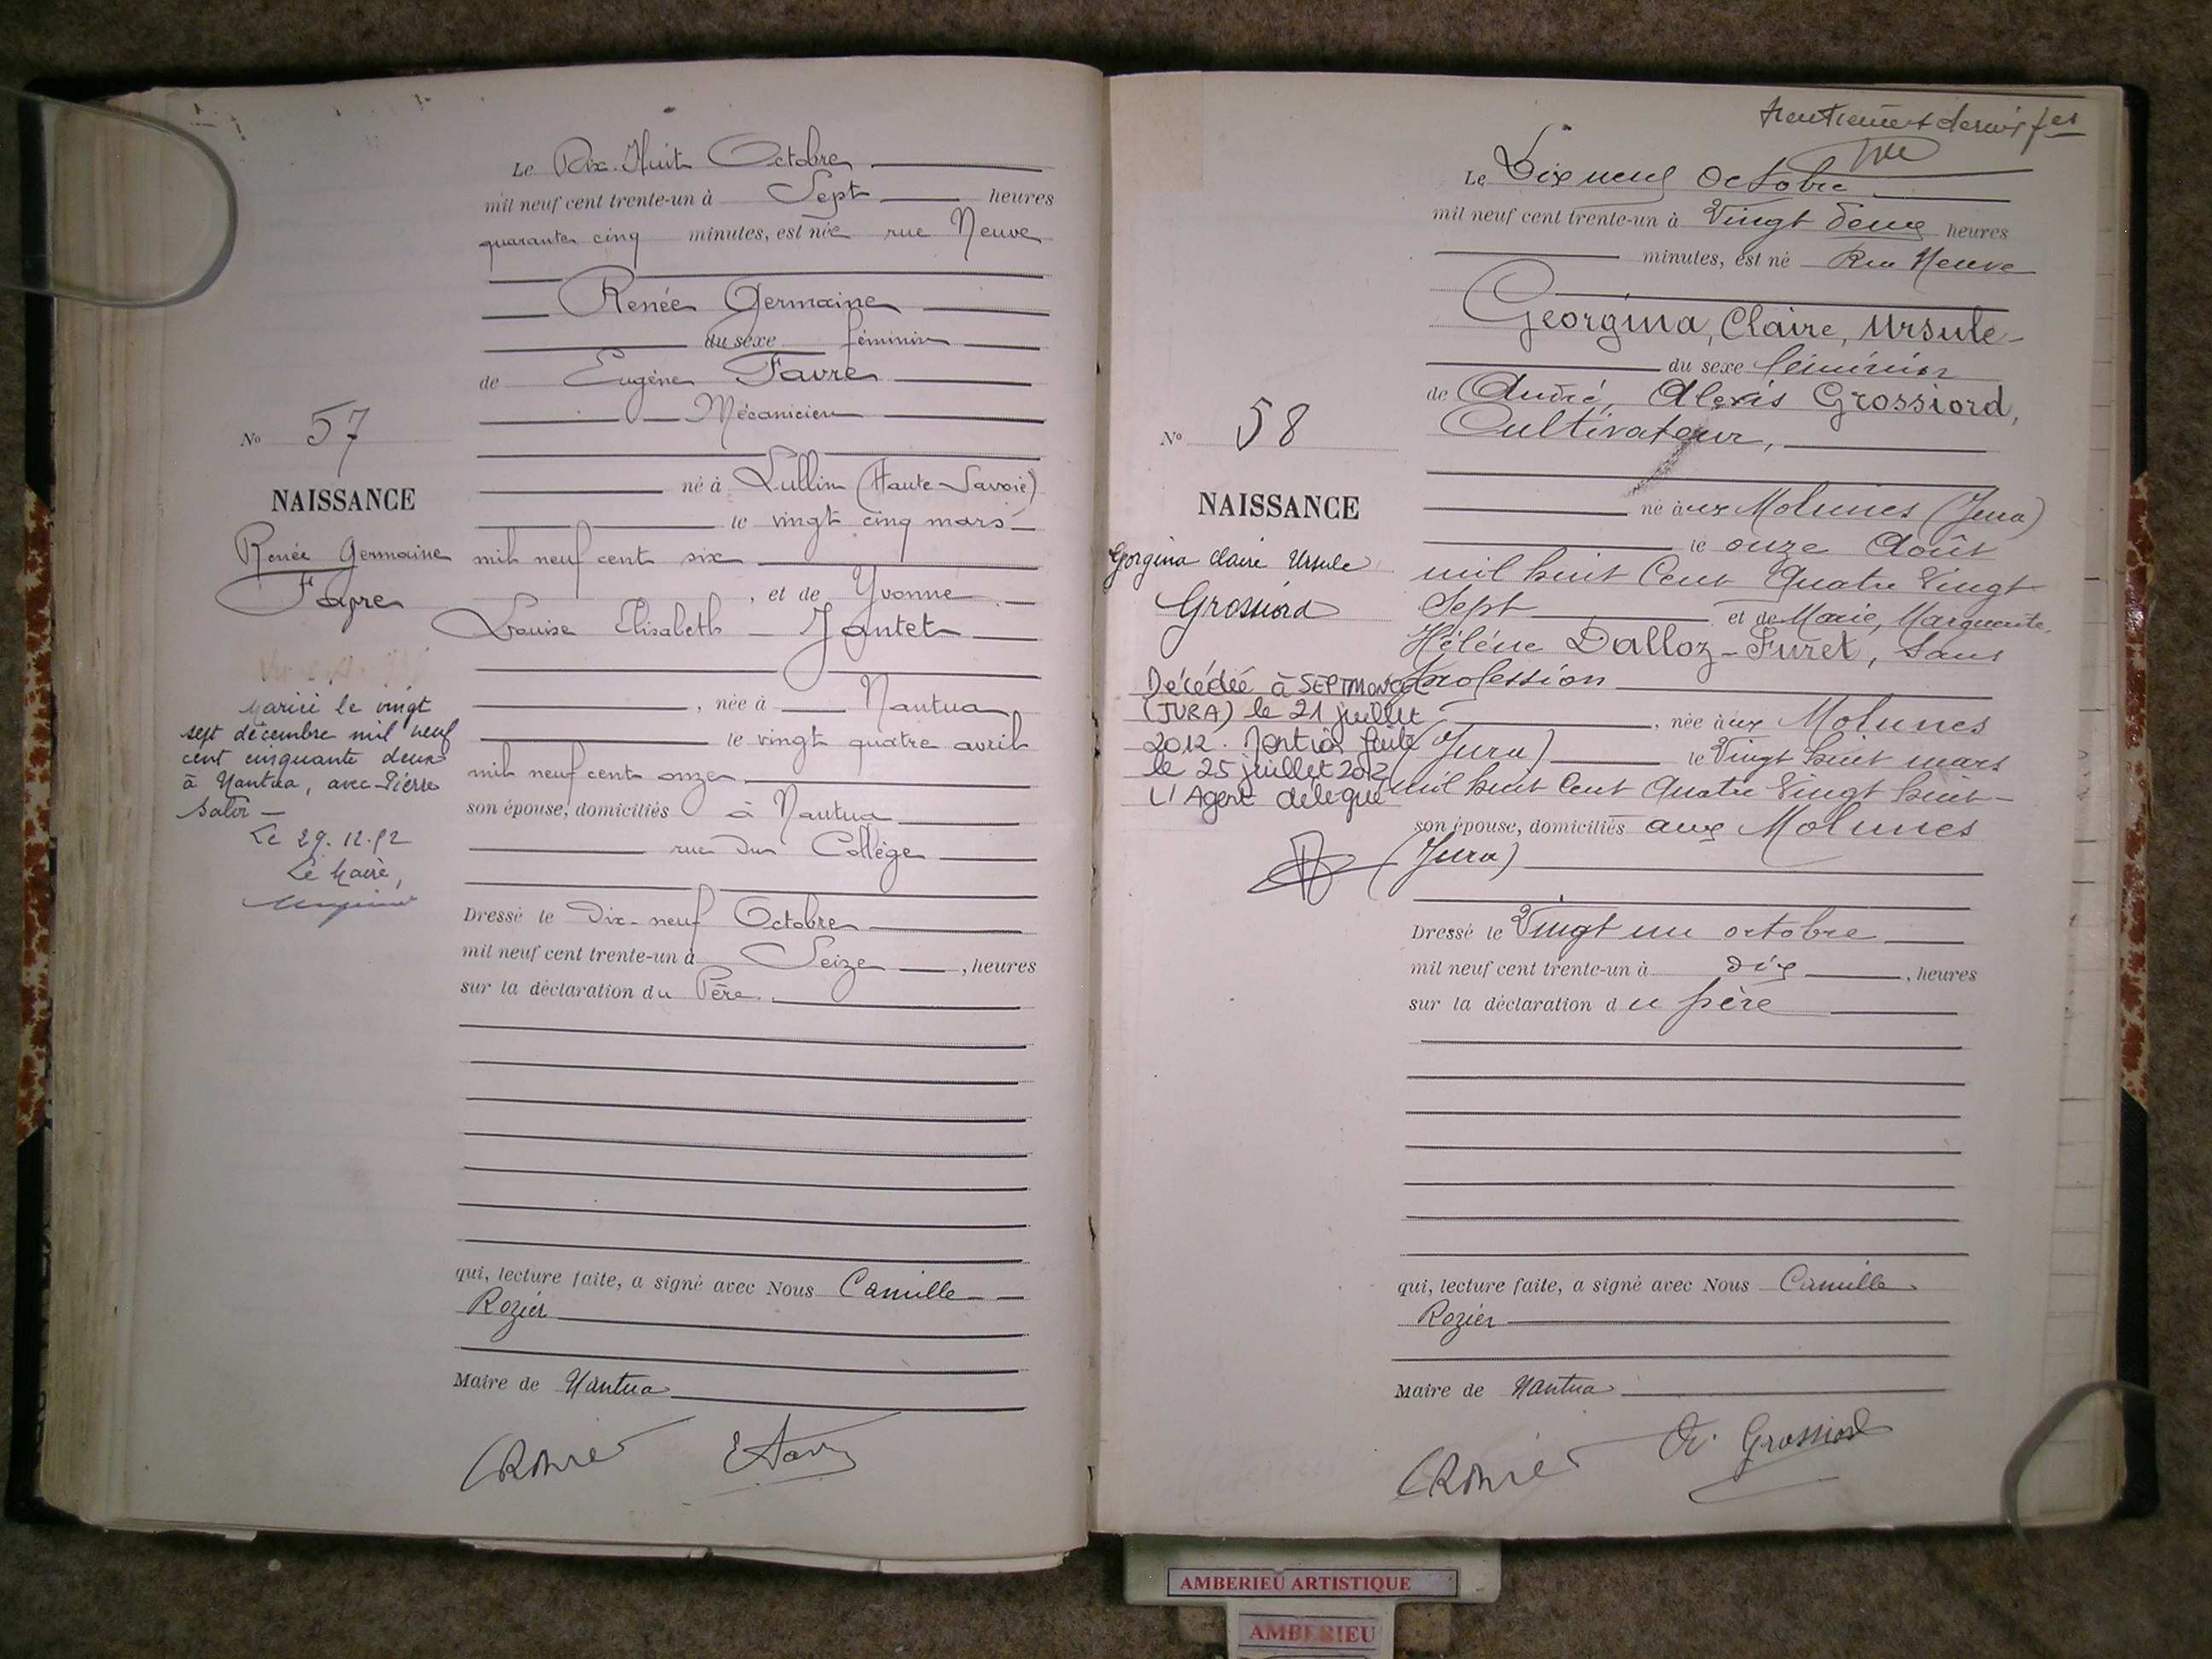 Le Dix-Huit Octobre
mil neuf cent trente-un à Sept heures
quarante cinq minutes, est née rue Neuve
Renée Germaine
du sexe féminin
de Eugène Favre
Mécanicien
né à Lullin (Haute-Savoie)
le vingt cinq mars
mil neuf cent six
, et de Yvonne
Louise Elisabeth - Jantet
, née à Nantua
le vingt quatre avril
mil neuf cent onze
son épouse, domiciliés à Nantua
rue du Collège
Dressé le Dix-neuf Octobre
mil neuf cent trente-un à Seize , heures
sur la déclaration du Père
qui, lecture faite, a signé avec Nous Camille
Rozier
Maire de Nantua
No 57
NAISSANCE
Renée Germaine
Favre
Mariée le vingt
sept décembre mil neuf
cent cinquante deux
à Nantua, avec Pierre
Le 29.12.52
Le Maire,
Le Dix neuf Octobre
mil neuf cent trente-un à Vingt deux heures
minutes, est né Rue Neuve
Géorgina, Claire, Ursule
du sexe féminin
de André, Alexis Grossiord,
Cultivateur,
né à ux Molunes (Jura)
le onze Août
mil huit Cent Quatre Vingt
Sept et de Marie, Marguerite,
Hélène Dalloz-Furet, Sans
profession
, née à ux Molunes
(Jura) le Vingt huit mars
mil huit Cent Quatre Vingt huit
son épouse, domiciliés aux Molunes
(Jura)
Dressé le Vingt un octobre
mil neuf cent trente-un à dix , heures
sur la déclaration du père
qui, lecture faite, a signé avec Nous Camille
Rozier
Maire de Nantua
Grossiord
No 58
NAISSANCE
Gorgina Claire Ursule
Grossiord
Décédée à SEPTMONCEL
(JURA) le 21 juillet
2012. Mention faite
le 25 juillet 2012
L'Agent délégué
AMBERIEU ARTISTIQUE
AMBERIEU